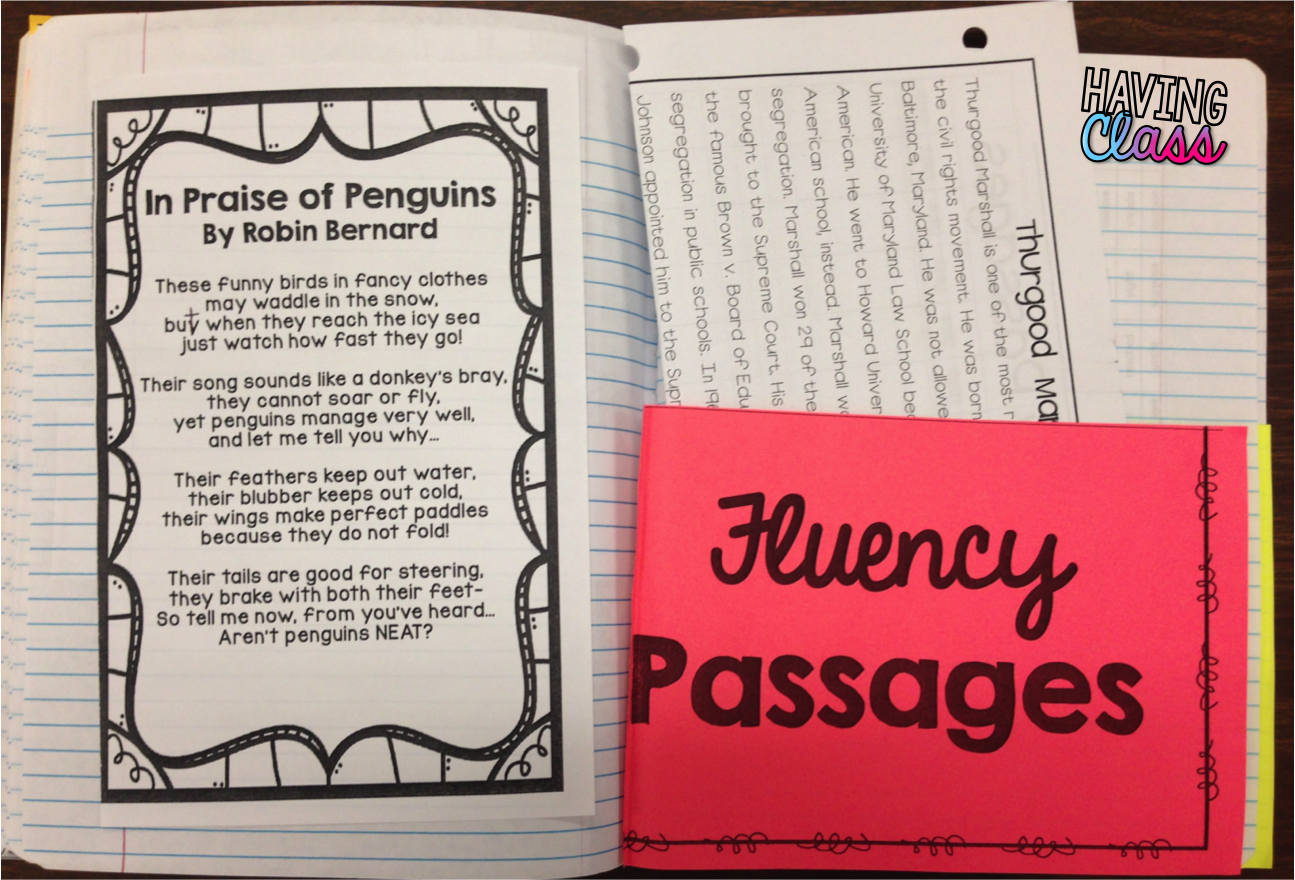 In Praise of Penguins
By Robin Bernard
These funny birds in fancy clothes
may waddle in the snow,
but when they reach the icy sea
just watch how fast they go!
Their song sounds like a donkey's bray,
they cannot soar or fly,
yet penguins manage very well,
and let me tell you why...
Their feathers keep out water,
their blubber keeps out cold,
their wings make perfect paddles
because they do not fold!
Their tails are good for steering,
they brake with both their feet-
So tell me now, from you've heard...
Aren't penguins NEAT?
Thurgood
Thurgood Marshall is one of the most
the civil rights movement. He was born
Baltimore, Maryland. He was not
University of Maryland Law School
American. He went to Howard
American school, instead. Marshall
segregation. Marshall won 29 of the
brought to the Supreme Court. His
the famous Brown v. Board of
segregation in public schools. In
Johnson appointed him to the
Fluency
Passages
HAVING
Class